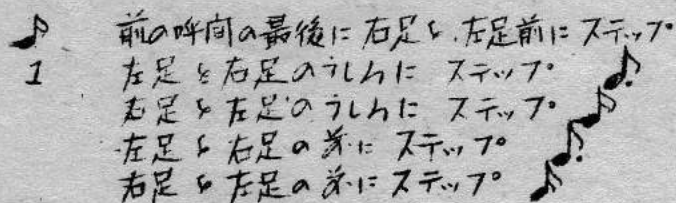 前の呼間の最後に右足を、左足前にステップ
1 左足を右足のうしろに ステップ
右足を左足のうしろに ステップ
左足を右足の前に ステップ
右足を左足の前に ステップ